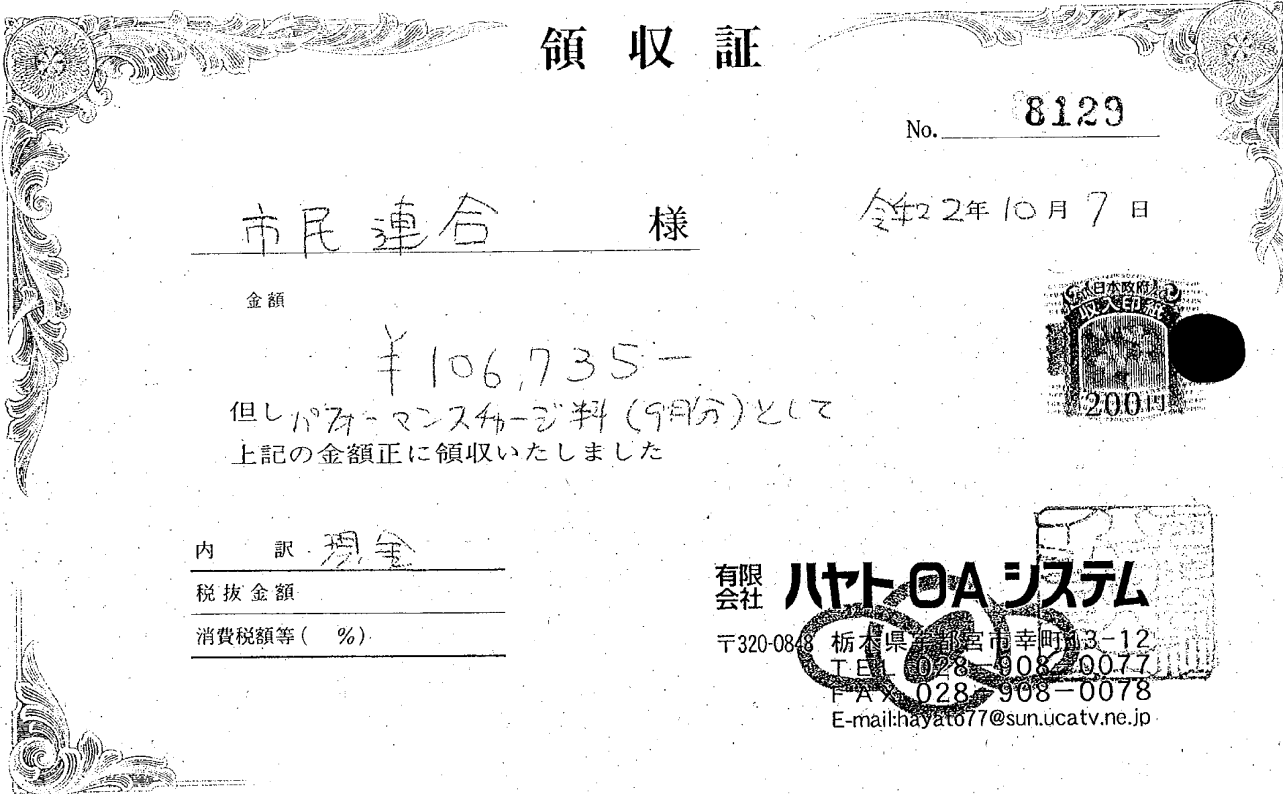 領収証
No. 8129
市民連合 様
令和2年10月7日
金額
¥106,735-
但しパフォーマンスチャージ料(9月分)として
上記の金額正に領収いたしました
日本政府
収入印紙
200円
内訳 現金
税抜金額
消費税額等( %)
有限会社 ハヤトOAシステム
〒320-0848 栃木県宇都宮市幸町13-12
TEL 028-908-0077
FAX 028-908-0078
E-mail:hayato77@sun.ucatv.ne.jp